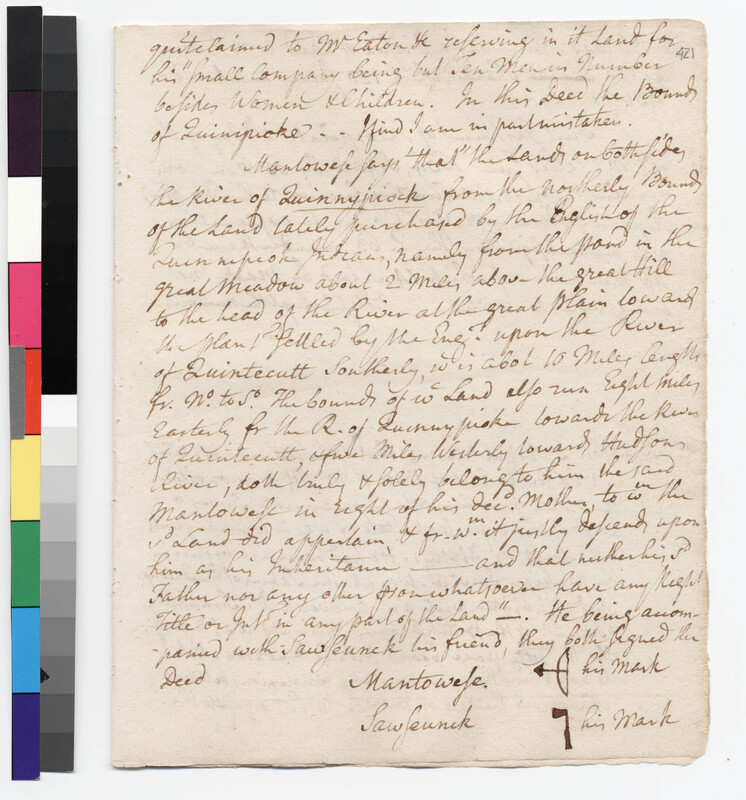 quitclaimed to Mr Eaton &c reserving in it Land for
421
his "small Company being but Ten Men in Number
besides Women & Children". In this Deed the Bounds
of Quinipicke - - I find I am in part mistaken.
Mantowese says "that" the Lands on both sides
the River of Quinnypiock from the northerly Bounds
of the Land lately purchased by the English of the
Quinnipiock Indians, namely from the pond in the
great meadow about 2 Miles above the great Hill
to the head of the River at the great plain toward
the plantn settled by the Engh upon the River
of Quintecutt Southerly, wc is abot 10 Miles length
fr. No. to So. The bounds of wc Land also run Eight miles
Easterly fr the R. of Quinnypiocke towards the River
of Quintecutt, & five Miles Westerly towards Hudsons
River, doth truly & solely belong to him the said
Mantowese in Right of his decd. Mother, to wm the
sd Land did appertain & fr. wm. it justly descends upon
him as his Inheritance —— and that neither his sd
Father nor any other pson whatsoever have any Right
Title or Intt in any part of the Land" —. He being accom-
-panied with Sawseunck his friend, they both signed the
Deed
Mantowese.
his Mark
Sawseunck
his Mark